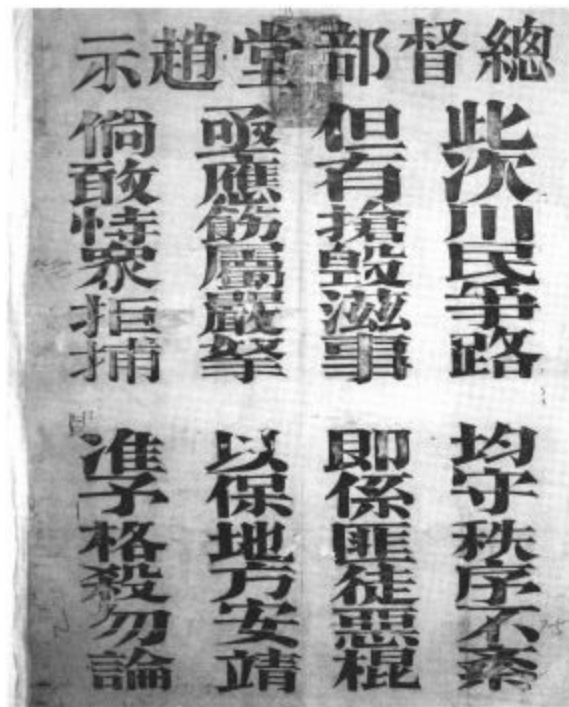 總督部堂趙示
此次川民爭路 均守秩序不紊
但有搶毀滋事 即係匪徒惡棍
亟應飭屬嚴拏 以保地方安靖
倘敢恃衆拒捕 准予格殺勿論